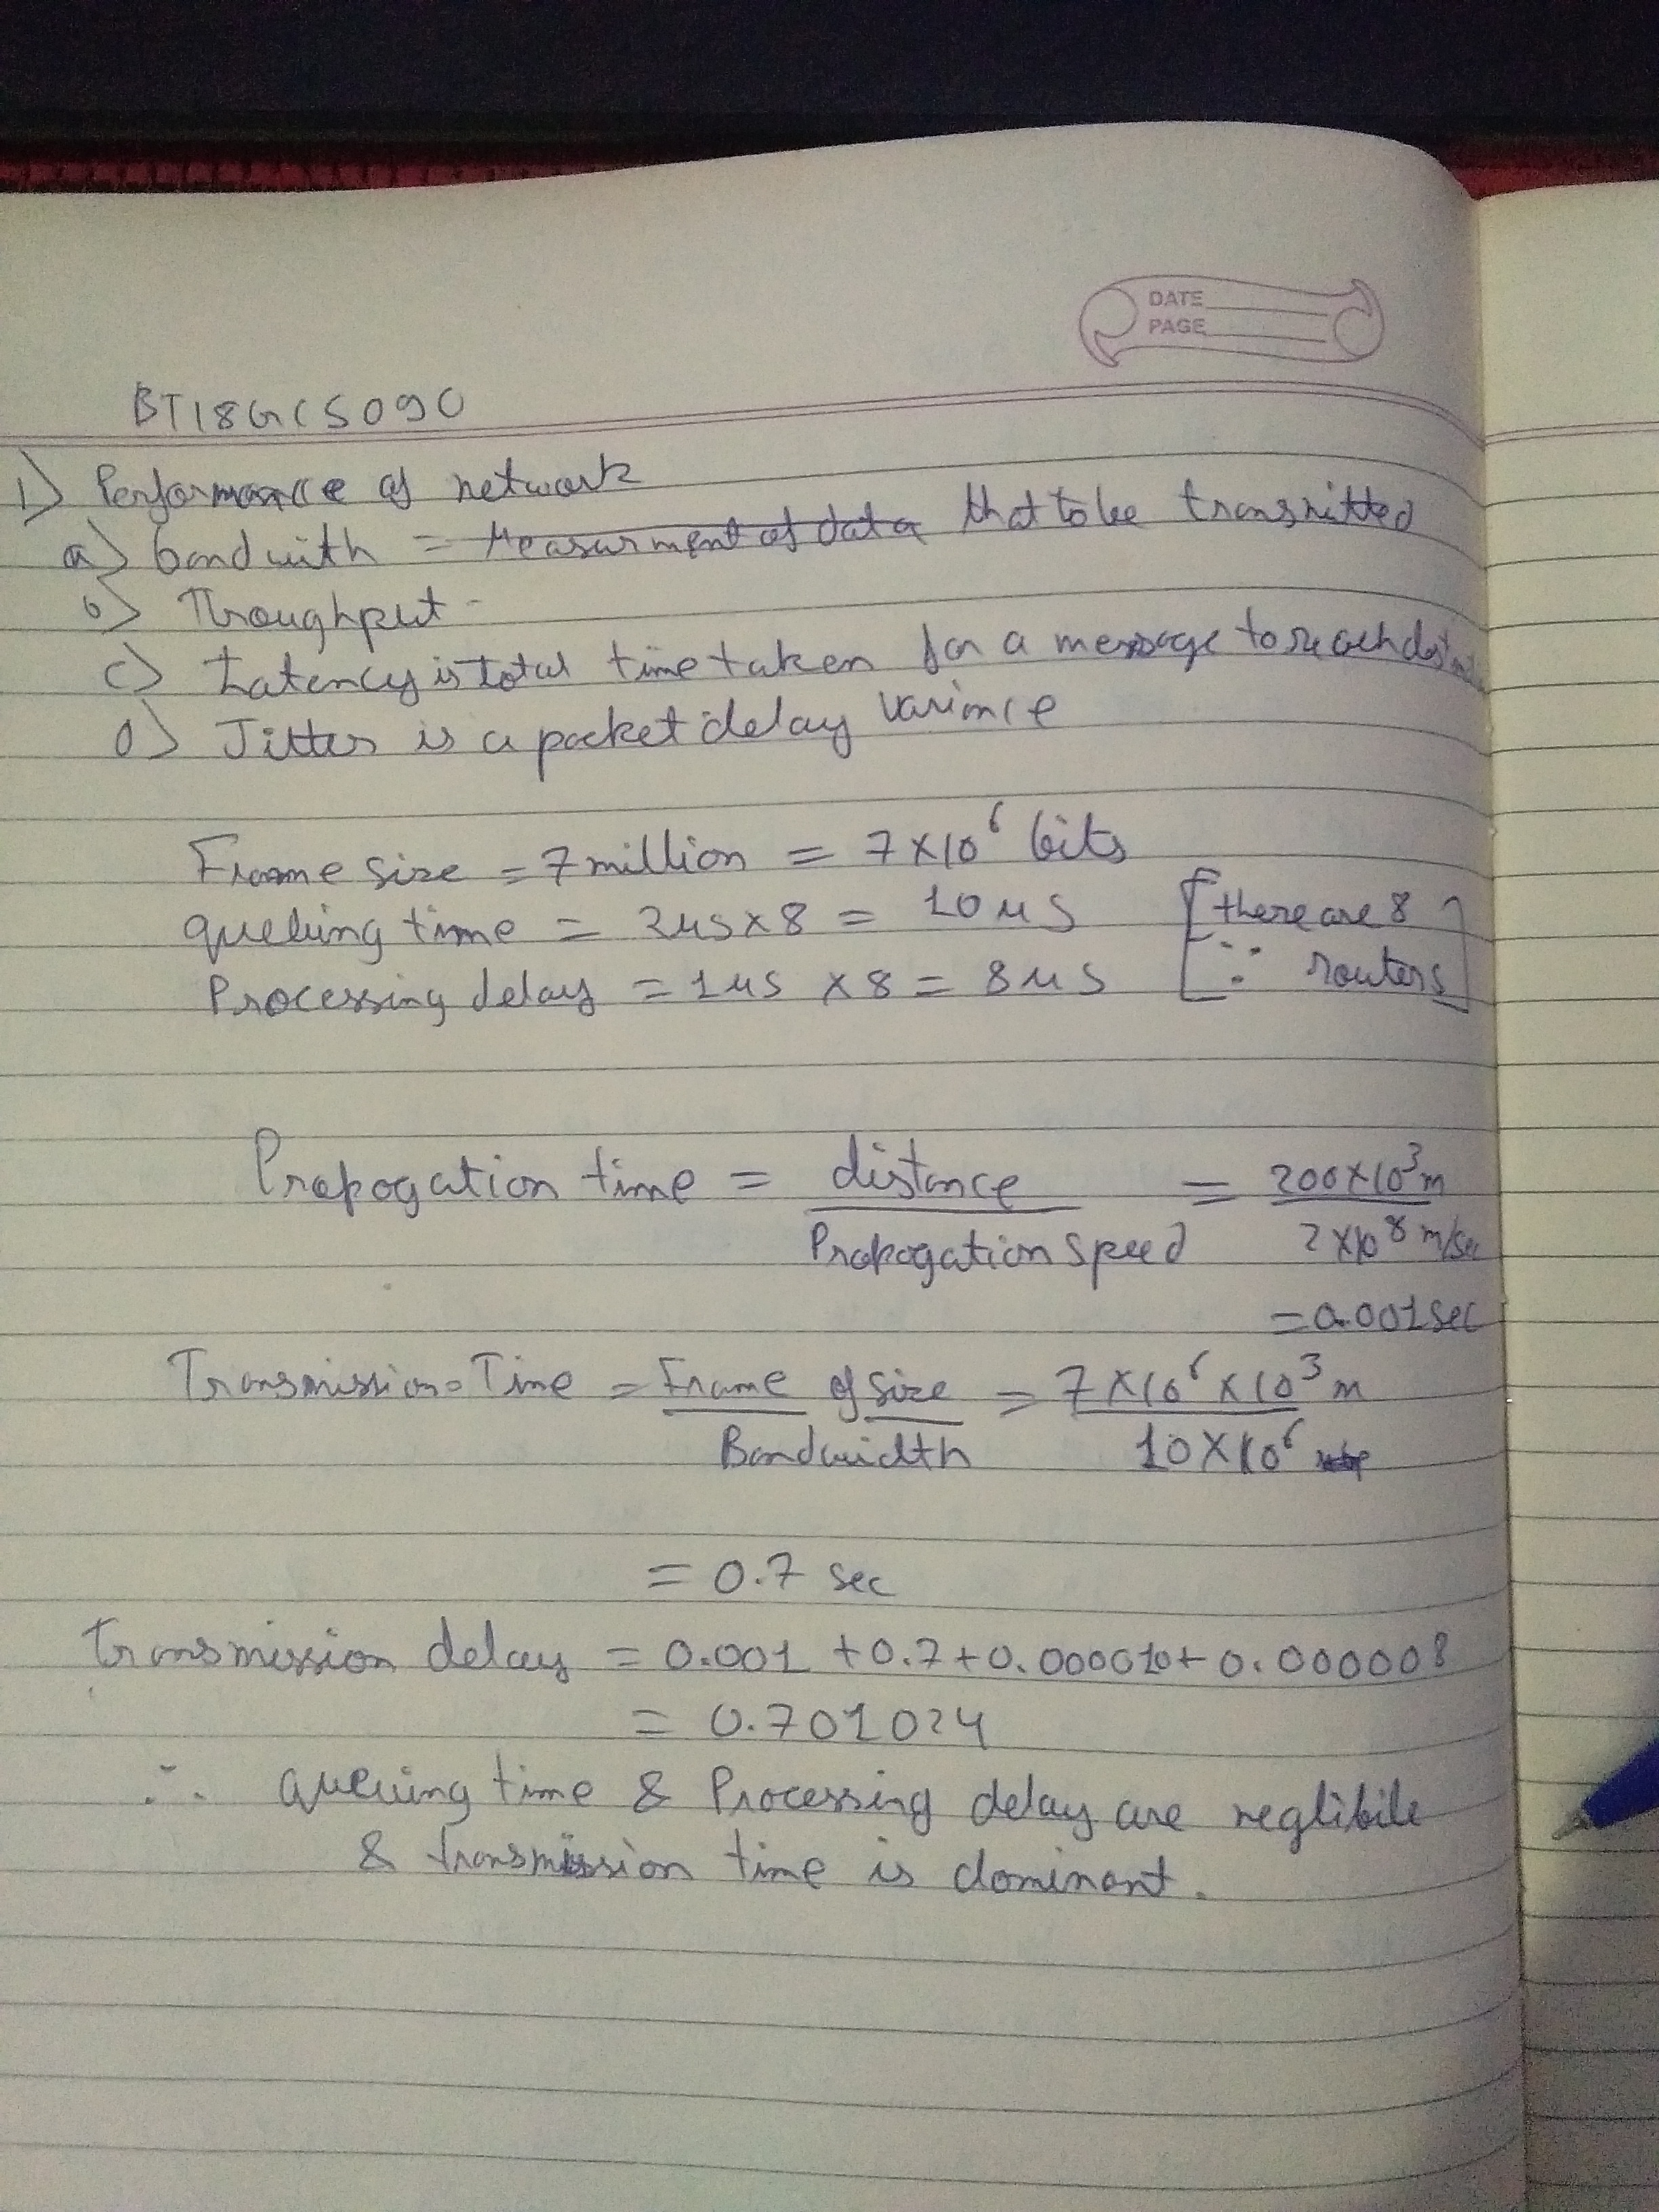 DATE
PAGE
BT18GCS090
1) Performance of network
a) bandwith = Measurment of data that to be transmitted
b) Throughput -
c) Latency is total time taken for a message to reach
d) Jitter is a packet delay variance
Frame size = 7 million = 7×10⁶ bits
queuing time = 2us×8 = 10us [there are 8
Processing delay = 1us ×8 = 8us ∵ routers]
Propogation time = distance = 200×10³m
Propogation speed 2×10⁸ m/sec
= 0.001 sec
Transmission Time = Frame of size = 7×10⁶×10³m
Bandwidth 10×10⁶
= 0.7 sec
Transmission delay = 0.001 + 0.7 + 0.000010 + 0.000008
= 0.701024
∴ queuing time & Processing delay are neglibile
& transmission time is dominant.